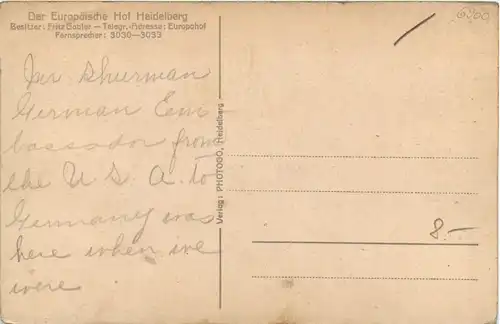 Der Europäische Hof Heidelberg
Besitzer: Fritz Gabler — Telegr.-Adresse: Europahof
Fernsprecher: 3030—3033
Mr Shurman
German Em-
bassador from
the U. S. A. to
Germaney was
here when we
were
Verlag: PHOTOOO, Heidelberg
8.-